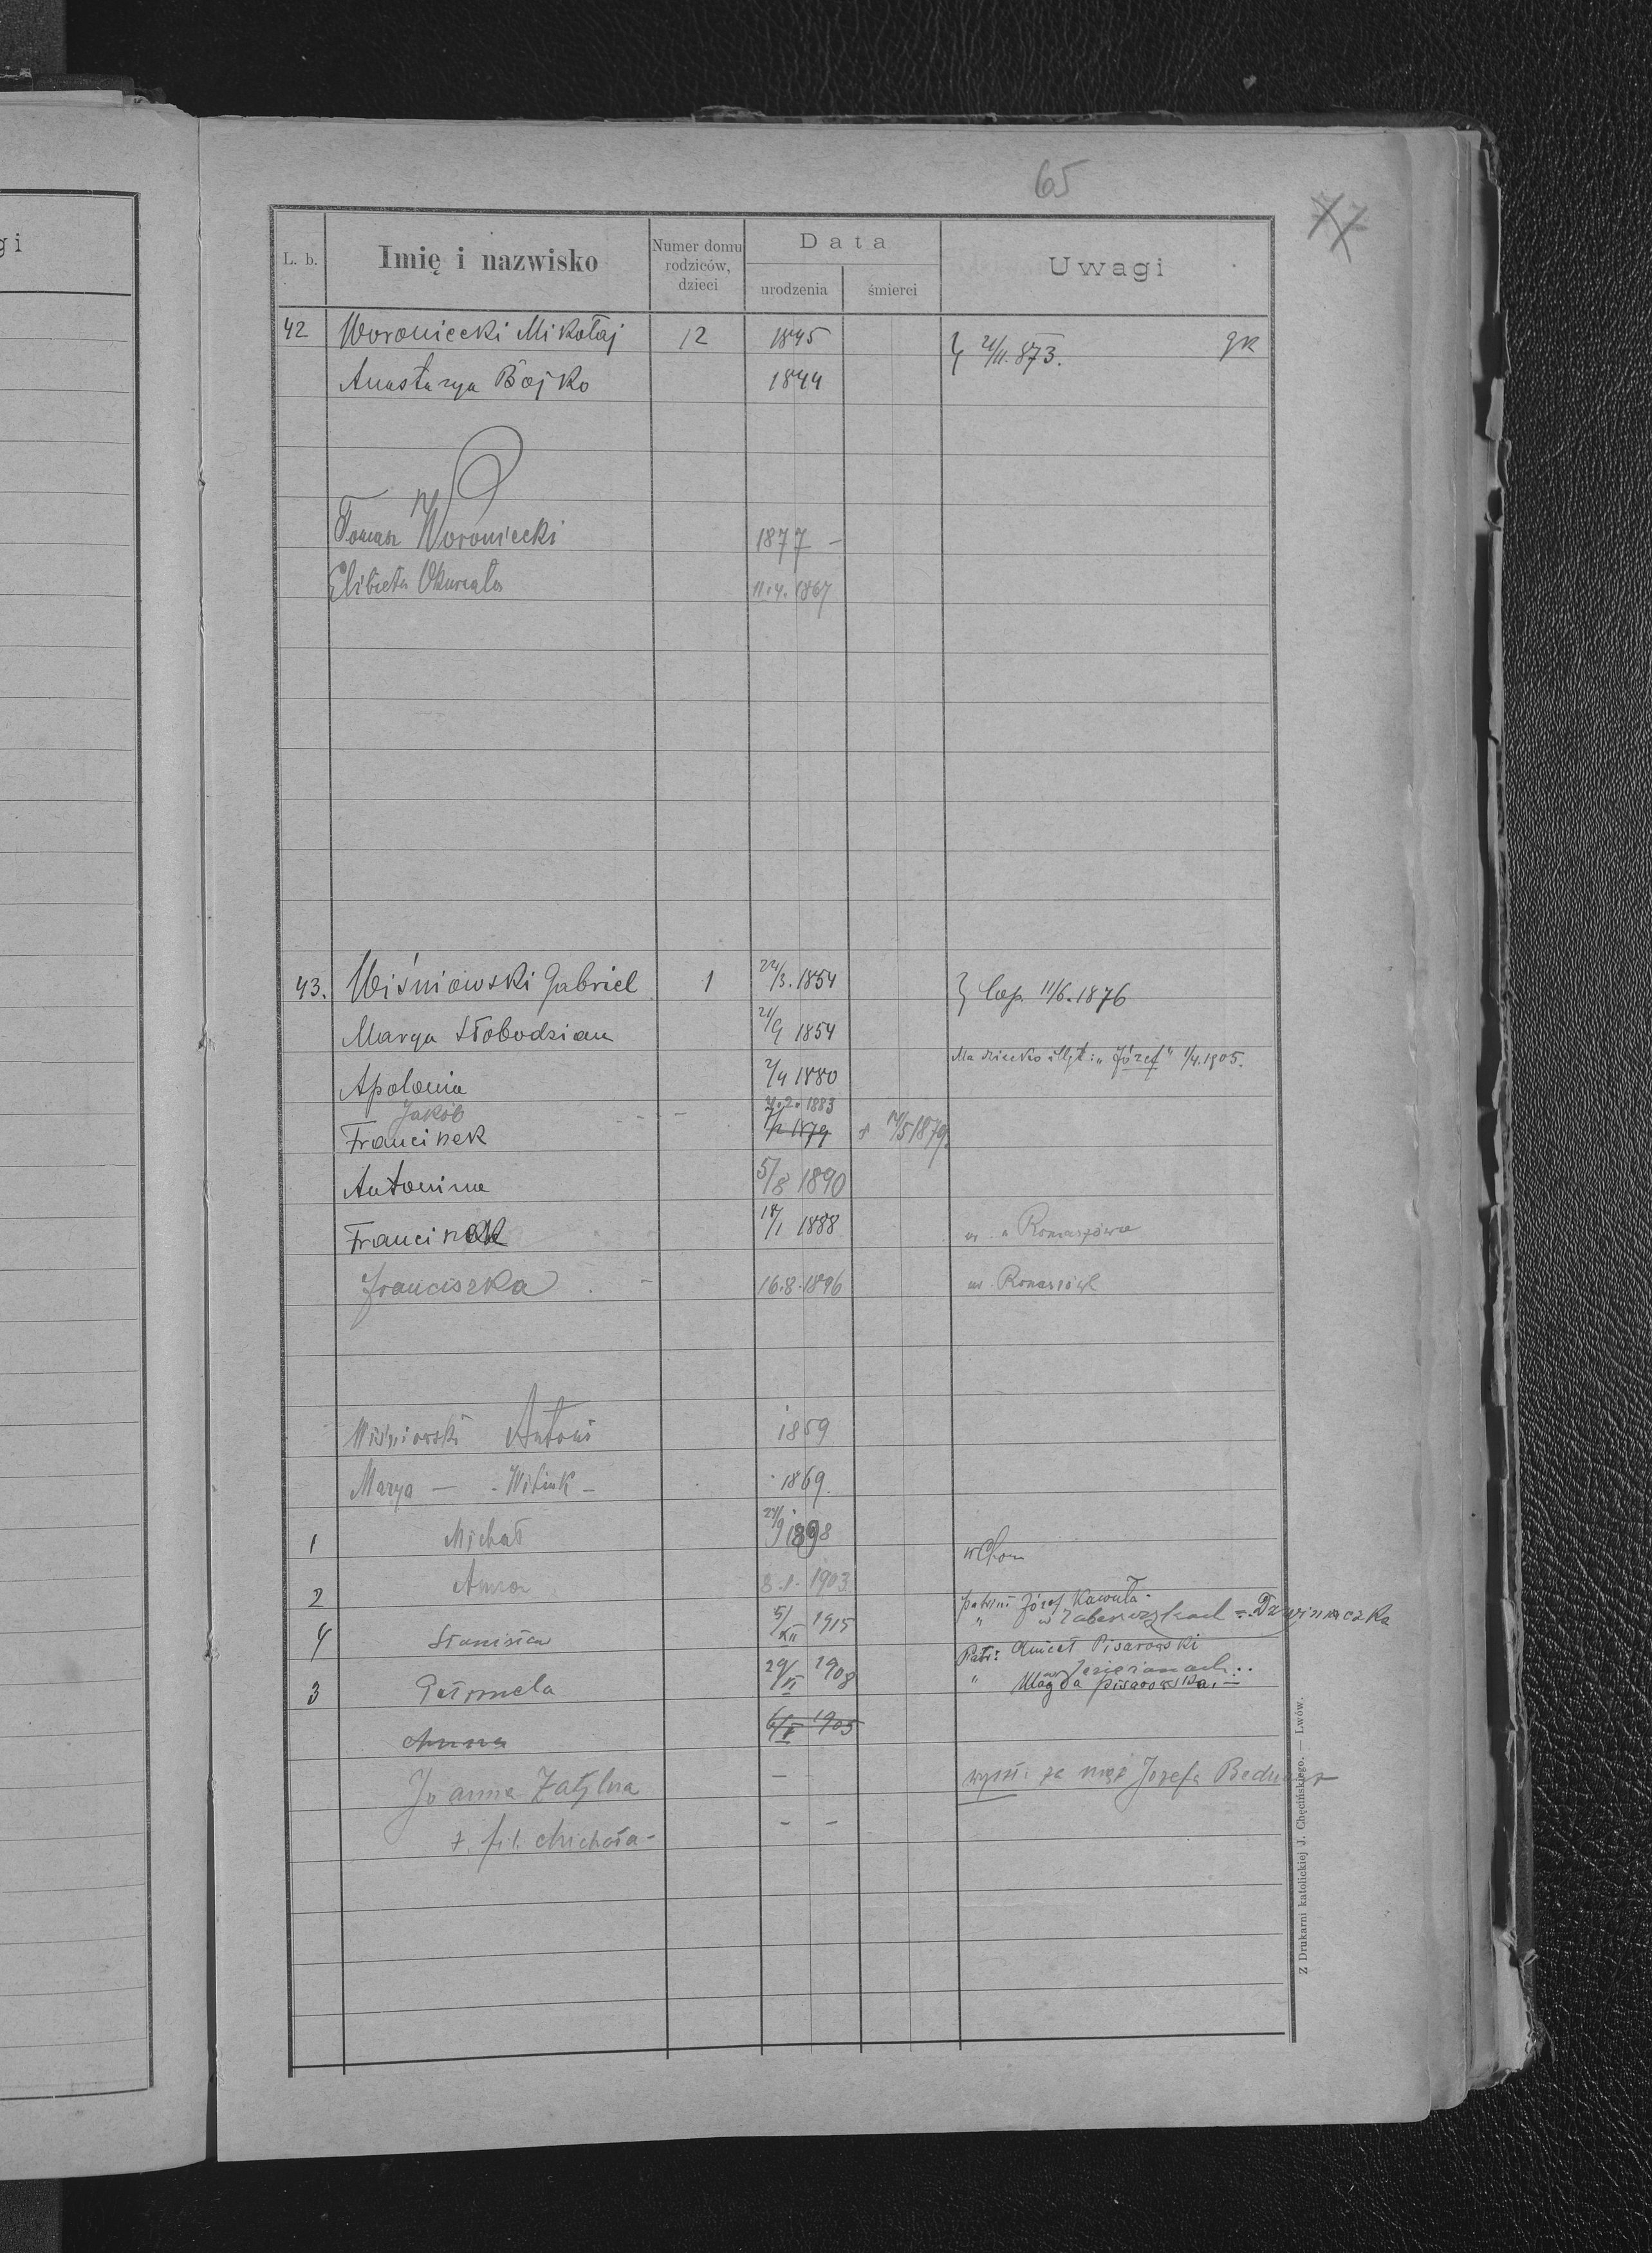 65
77
gi
L. b. Imię i nazwisko Numer domu rodziców, dzieci Data urodzenia śmierci Uwagi
42 Woroniecki Mikołaj 12 1845 21/11.873. gk
Anastazya Bojko 1844
Tomasz Woroniecki 1877 –
Elżbieta 11.4.1867
43. Wiśniowski Gabriel 1 24/3.1854 cop. 11/6.1876
Marya Słobodzian 21/9 1854
Ma dziecko illgt: „Józef" 1/4.1905.
Apolonia 2/4 1880
Jakób - - – 2.2.1883
Franciszek 1/2 1879 + 14/5 1879.
Antonina 5/8 1890
Franciszek 18/1 1888
Franciszka – 16.8.1896
Wiśniowski Antoni 1859
Marya — - Wibink – 1869.
1 Michał 24/9 1898
2 Anna 8.1.1903
Józef Kawuła
4 Stanisław 5/XII 1915
Pisarowski
3 Petronela 29/VI 1908
" Magda Pisarowska. –
Anna 6/V 1905
Joanna – za mąż Józefa
fil. Michała - - -
Z Drukarni katolickiej J. Chęcińskiego. — Lwów.